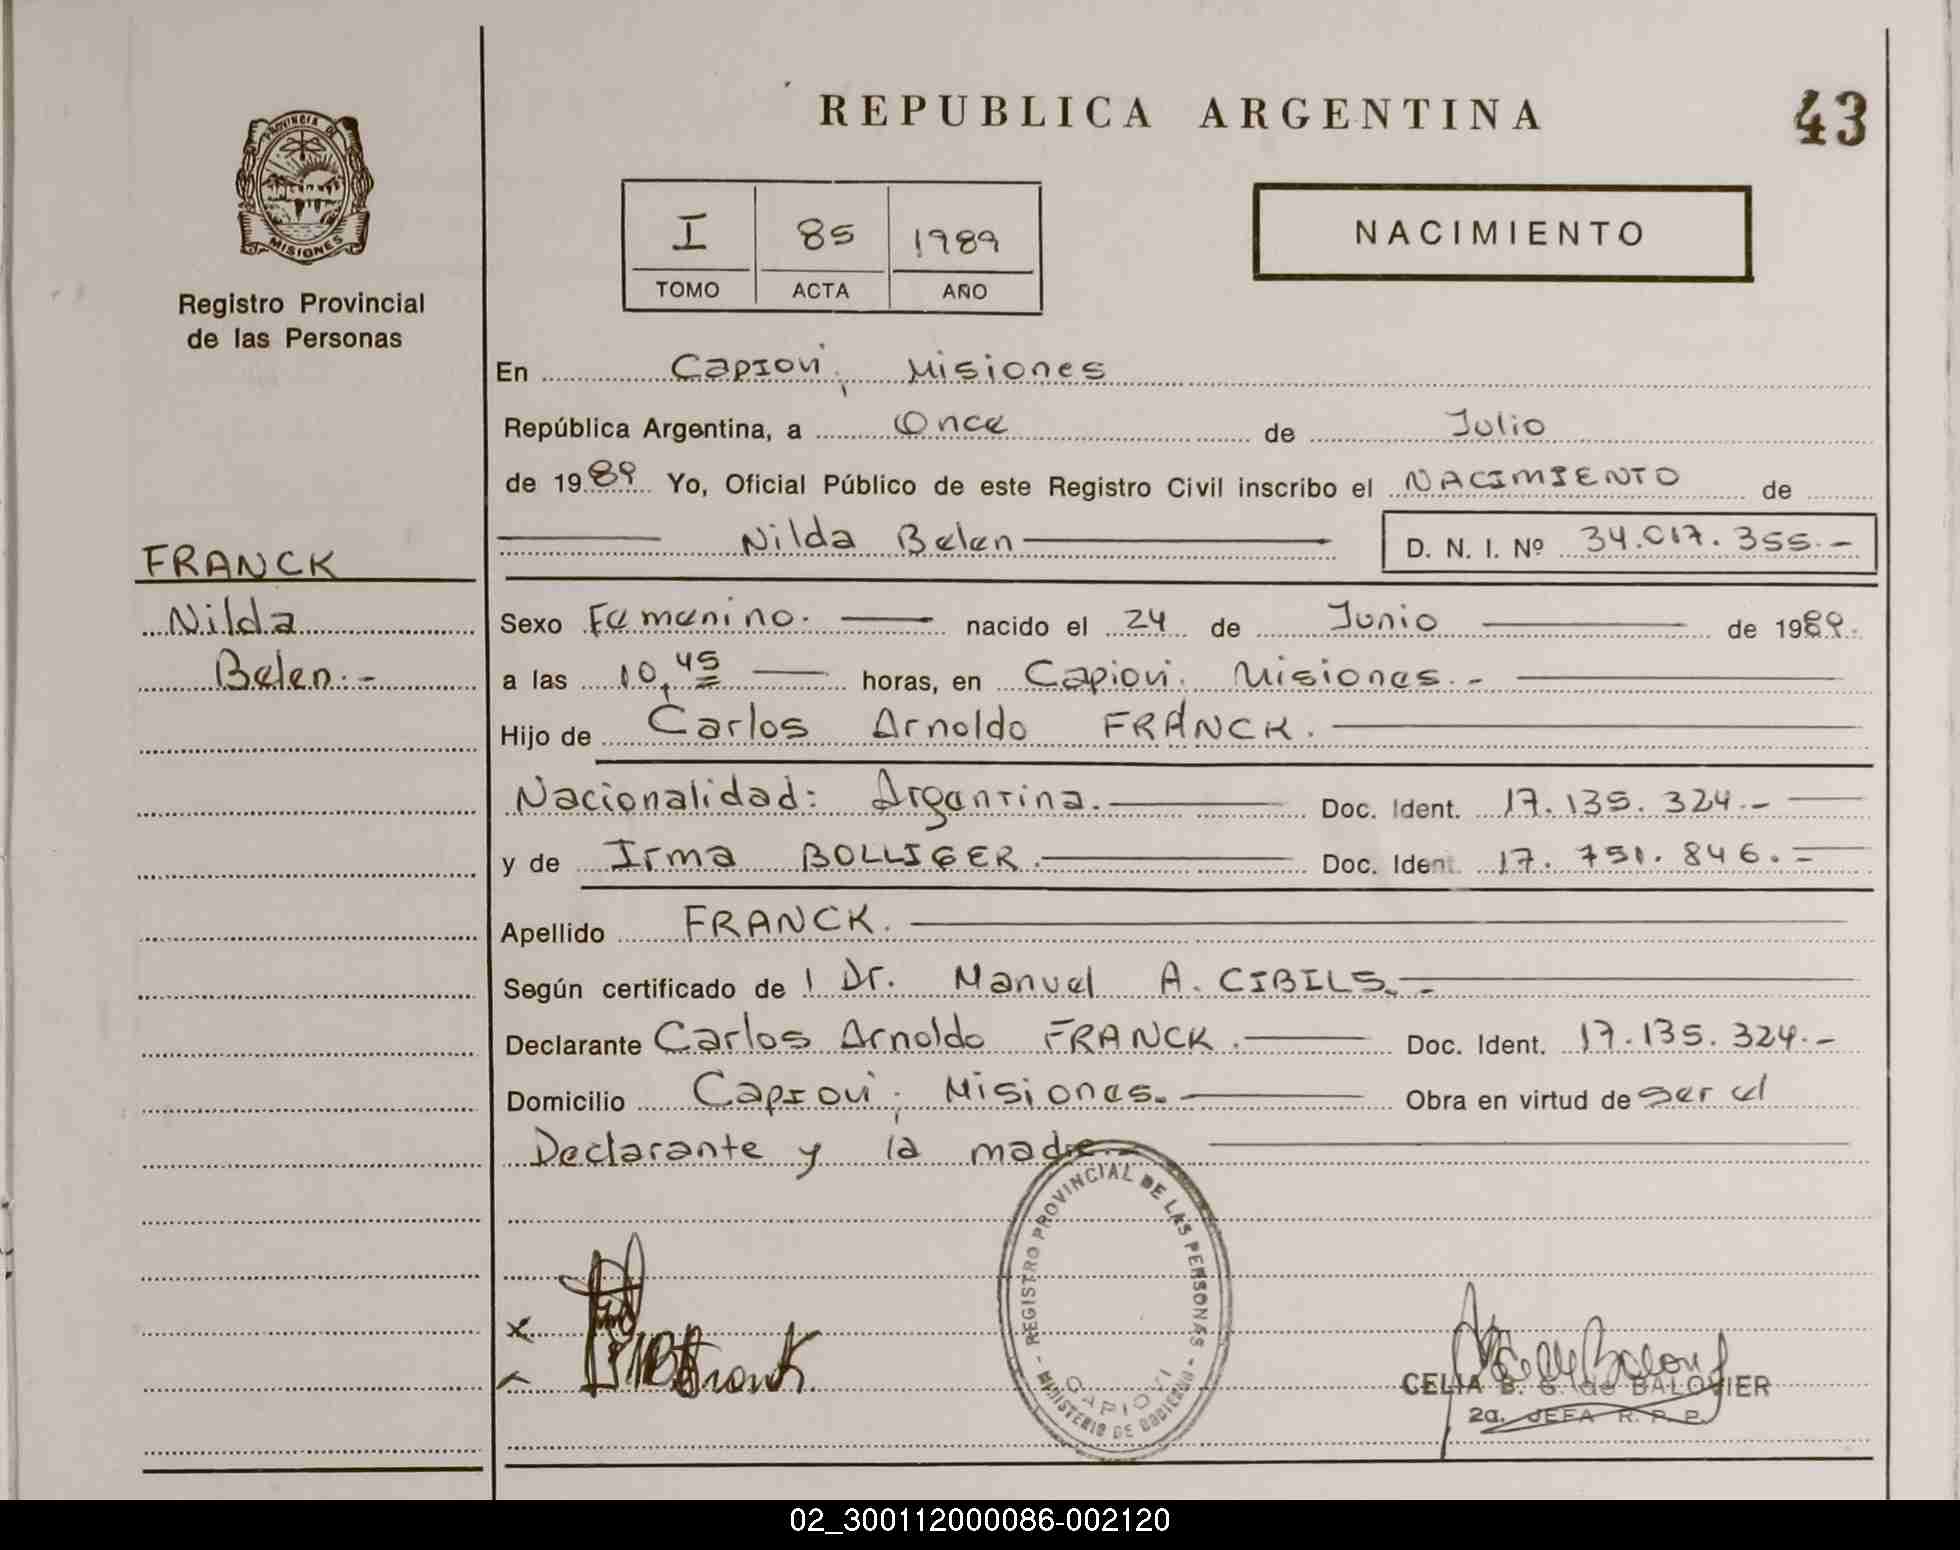 REPUBLICA ARGENTINA
43
PROVINCIA DE
MISIONES
Registro Provincial
de las Personas
I 85 1989
TOMO ACTA AÑO
NACIMIENTO
En Capiovi, Misiones
República Argentina, a Once de Julio
de 1989 Yo, Oficial Público de este Registro Civil inscribo el NACIMIENTO de
Nilda Belen D. N. I. Nº 34.017.355.-
FRANCK
Nilda
Belen.-
Sexo Femenino. nacido el 24 de Junio de 1989.
a las 10,45 horas, en Capiovi. Misiones.-
Hijo de Carlos Arnoldo FRANCK.
Nacionalidad: Argentina. Doc. Ident. 17.135.324.-
y de Irma BOLLIGER. Doc. Ident. 17.751.846.-
Apellido FRANCK.
Según certificado de l Dr. Manuel A. CIBILS.-
Declarante Carlos Arnoldo FRANCK. Doc. Ident. 17.135.324.-
Domicilio Capiovi, Misiones. Obra en virtud de ser el
Declarante y la madre.-
REGISTRO PROVINCIAL DE LAS PERSONAS - MINISTERIO DE GOBIERNO -
CAPIOVI
CELIA B. G. de BALOVIER
2a. JEFA R. P. P.
02_300112000086-002120